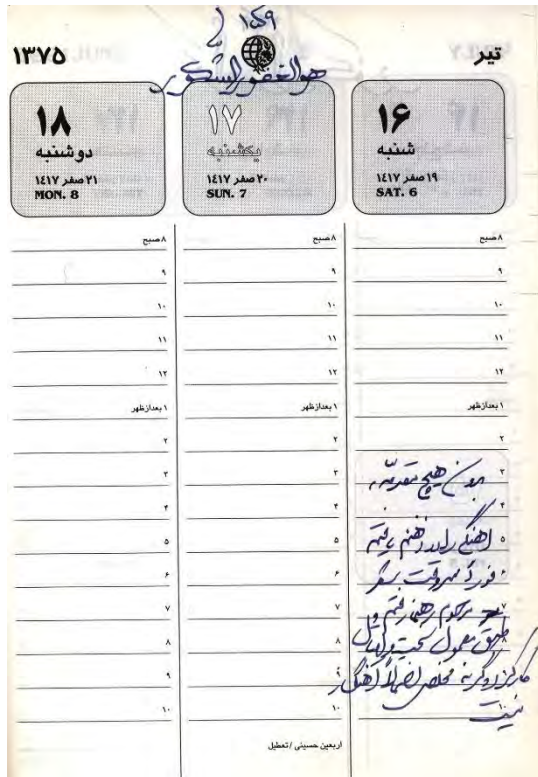 ۱۵۹
هوالغفور الشکور
تیر
۱۳۷۵
۱۶
شنبه
۱۹ صفر ۱٤۱۷
SAT. 6
۱۷
یکشنبه
۲۰ صفر ۱٤۱۷
SUN. 7
۱۸
دوشنبه
۲۱ صفر ۱٤۱۷
MON. 8
۸ صبح
۹
۱۰
۱۱
۱۲
۱ بعدازظهر
۲
۳
۴
۵
۶
۷
۸
بدون هیچ مقدمه،
آهنگی را در ذهنم یافتم
فوراً بسروقت
مرحوم رهی رفتم و
طبق معمول
آهنگ
نیست
۸ صبح
۹
۱۰
۱۱
۱۲
۱ بعدازظهر
۲
۳
۴
۵
۶
۷
۸
۹
۱۰
اربعین حسینی / تعطیل
۸ صبح
۹
۱۰
۱۱
۱۲
۱ بعدازظهر
۲
۳
۴
۵
۶
۷
۸
۹
۱۰